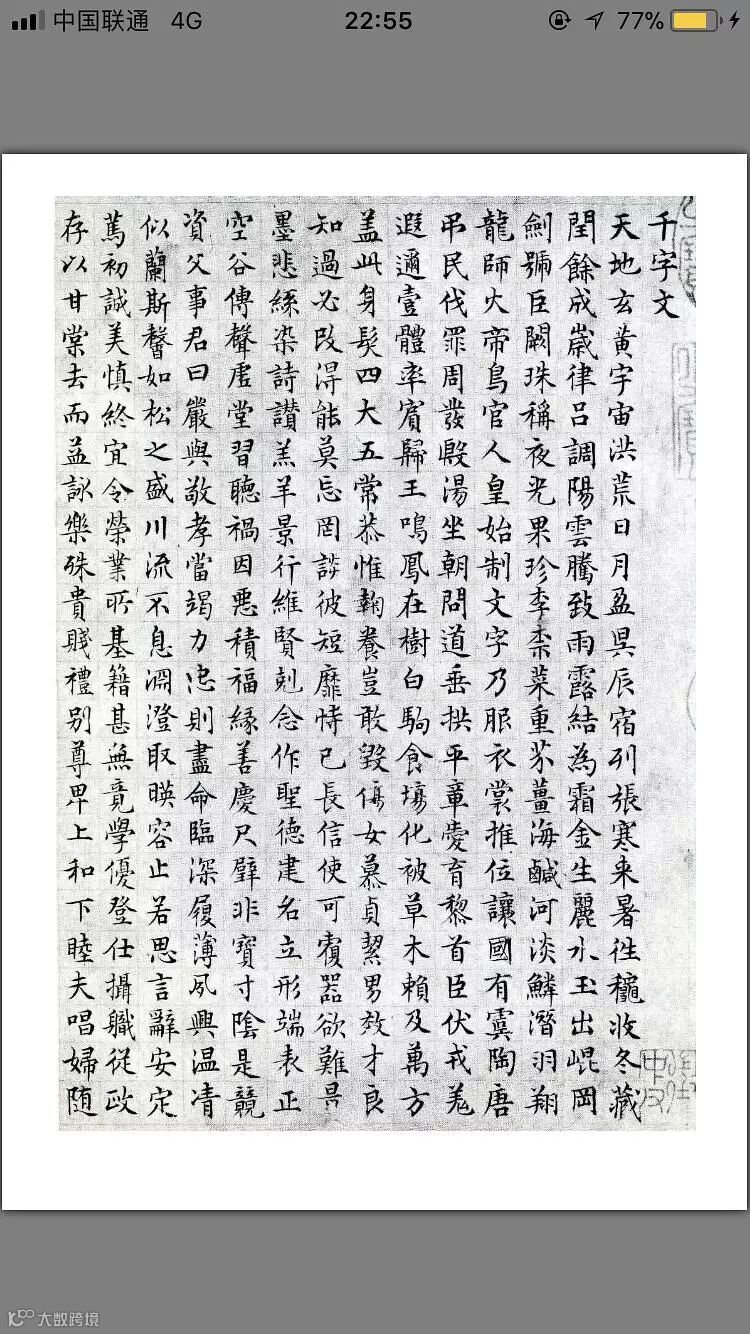 中国联通 4G 22:55 77%
千字文
天地玄黃宇宙洪荒日月盈昃辰宿列張寒来暑往穐收冬藏
閏餘成歲律呂調陽雲騰致雨露結為霜金生麗水玉出崐岡
劍號巨闕珠稱夜光果珍李柰菜重芥薑海鹹河淡鱗潛羽翔
龍師火帝鳥官人皇始制文字乃服衣裳推位讓國有虞陶唐
吊民伐罪周發殷湯坐朝問道垂拱平章愛育黎首臣伏戎羌
遐邇壹體率賓歸王鳴鳳在樹白駒食場化被草木賴及萬方
盖此身髮四大五常恭惟鞠養豈敢毀傷女慕貞絜男效才良
知過必改得能莫忘罔談彼短靡恃己長信使可覆器欲難量
墨悲絲染詩讚羔羊景行維賢剋念作聖德建名立形端表正
空谷傳聲虛堂習聽禍因惡積福緣善慶尺璧非寶寸陰是競
資父事君曰嚴與敬孝當竭力忠則盡命臨深履薄夙興温凊
似蘭斯馨如松之盛川流不息淵澄取暎容止若思言辭安定
篤初誠美慎終宜令榮業所基籍甚無竟學優登仕攝職從政
存以甘棠去而益詠樂殊貴賤禮别尊卑上和下睦夫唱婦随
大数跨境